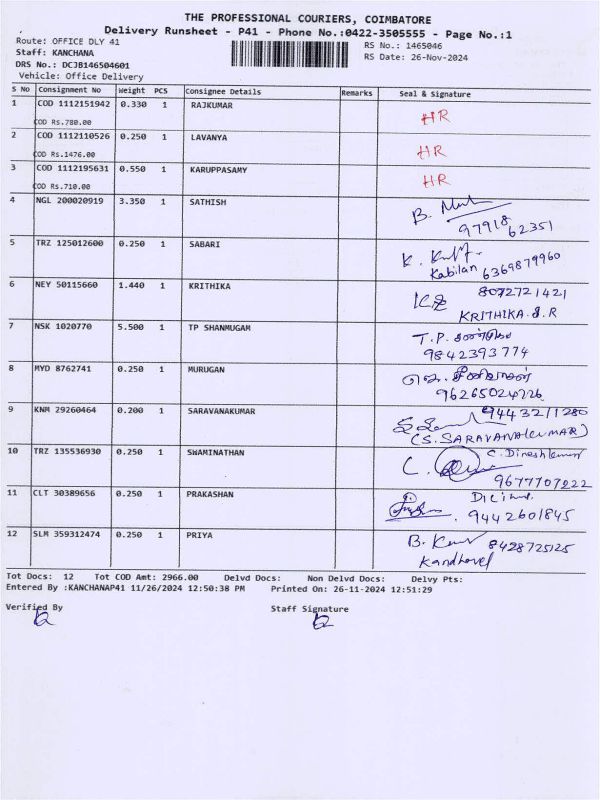 THE PROFESSIONAL COURIERS, COIMBATORE
Delivery Runsheet - P41 - Phone No.:0422-3505555 - Page No.:1
Route: OFFICE DLY 41 RS No.: 1465046
Staff: KANCHANA RS Date: 26-Nov-2024
DRS No.: DCJB146504601
Vehicle: Office Delivery
S No Consignment No Weight PCS Consignee Details Remarks Seal & Signature
1 COD 1112151942 0.330 1 RAJKUMAR HR
COD Rs.780.00
2 COD 1112110526 0.250 1 LAVANYA HR
COD Rs.1476.00
3 COD 1112195631 0.550 1 KARUPPASAMY HR
COD Rs.710.00
4 NGL 200020919 3.350 1 SATHISH B.
97918 62351
5 TRZ 125012600 0.250 1 SABARI K.
Kabilan 6369879960
6 NEY 50115660 1.440 1 KRITHIKA 8072721421
KRITHIKA.S.R
7 NSK 1020770 5.500 1 TP SHANMUGAM T.P.
9842393774
8 MYD 8762741 0.250 1 MURUGAN
9 KNM 29260464 0.200 1 SARAVANAKUMAR 9443211280
(S.SARAVANAKUMAR)
10 TRZ 135536930 0.250 1 SWAMINATHAN C. C. Dineshkumar
9677707222
11 CLT 30389656 0.250 1 PRAKASHAN
9442601845
12 SLM 359312474 0.250 1 PRIYA B. 8428725125
Kandhavel
Tot Docs: 12 Tot COD Amt: 2966.00 Delvd Docs: Non Delvd Docs: Delvy Pts:
Entered By :KANCHANAP41 11/26/2024 12:50:38 PM Printed On: 26-11-2024 12:51:29
Verified By Staff Signature